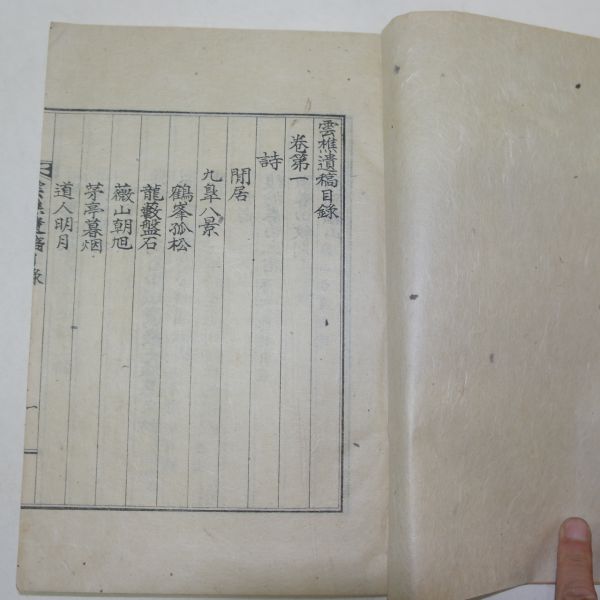 雲樵遺稿目錄
卷第一
詩
閒居
九臯八景
鶴峯孤松
龍藪盤石
薇山朝旭
茅亭暮烟
道人明月
雲樵遺稿目錄
一